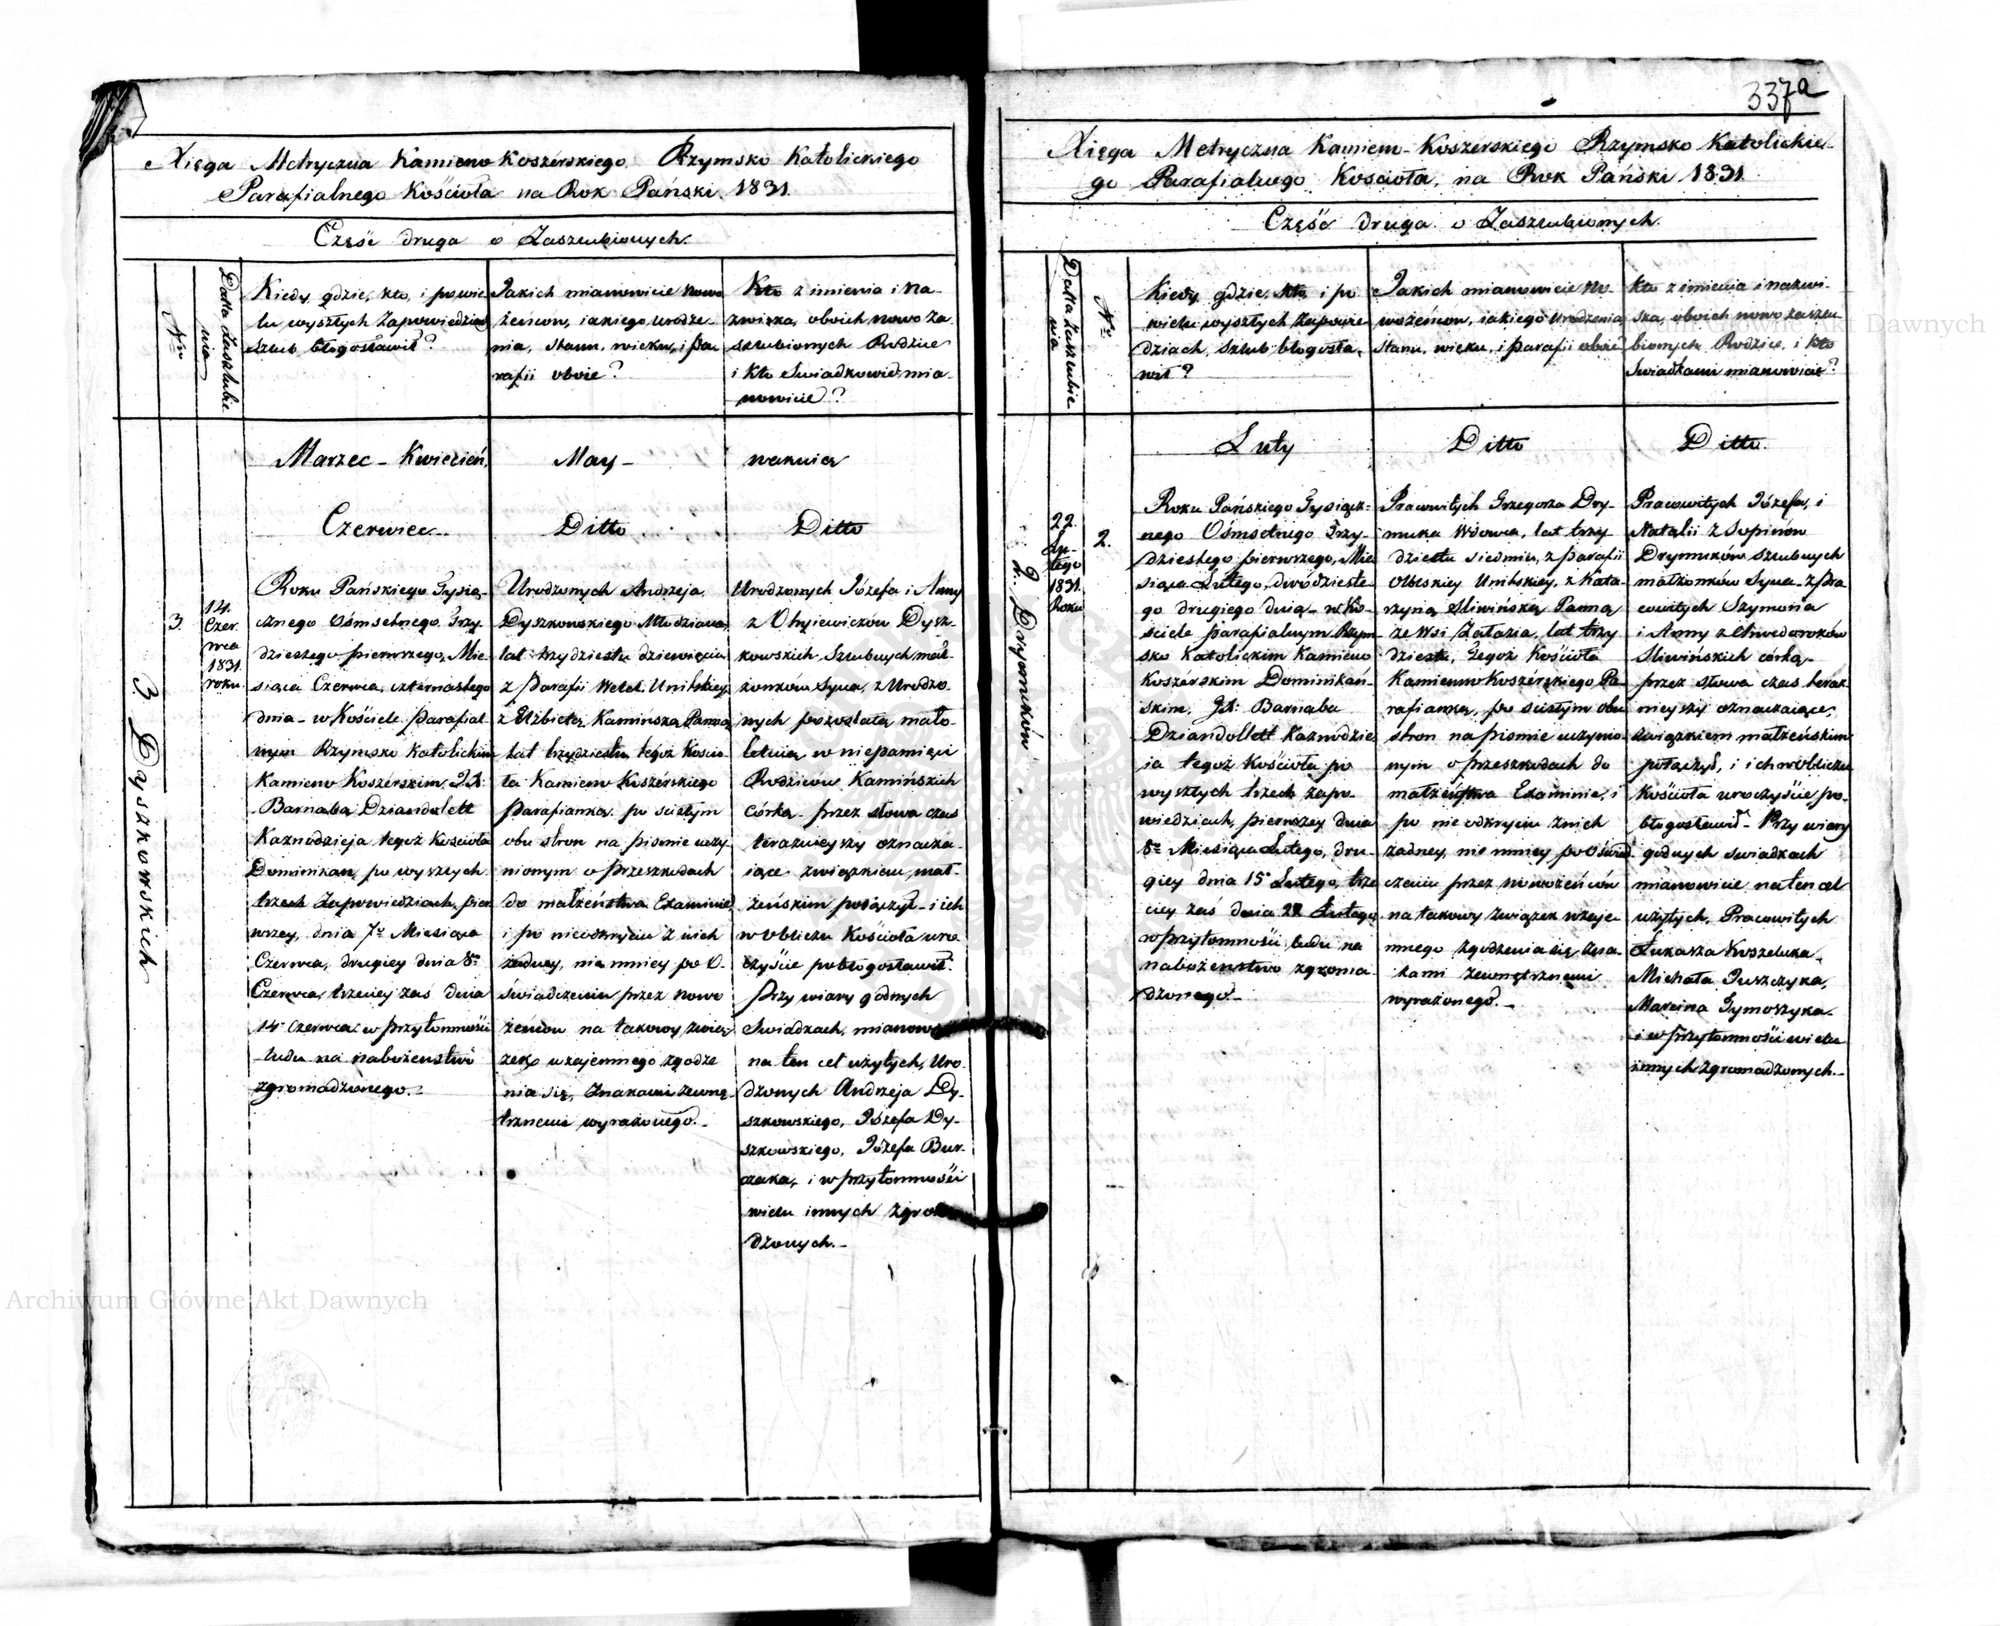 337a
Xięga Metryczna Kamieno Koszérskiego Rzymsko Katolickiego
Parafialnego Kościoła na Rok Pański 1831.
Część druga o Zaszlubionych.
Nro
Datta Zaszlubie
nia
Kiedy, gdzie, kto, i po wie
lu wyszłych Zapowiedziach
szlub błogosławił?
Jakich mianowicie nowo
żeńców, iakiego urodze-
nia, stanu, wieku, i pa
rafii oboie?
Kto z imienia i na-
zwiska, oboich nowo za
szlubionych Rodzice
i kto Swiadkowie, mia-
nowicie?
Marzec - Kwiecień,
May -
wakuią
Czerwiec
Ditto
Ditto
3 Dyszkowskich
3.
14.
Czer-
wca
1831.
roku
Roku Pańskiego Tysią-
cznego Ośmsetnego Trzy-
dziestego pierwszego, Mie
siąca Czerwca, czternastego
dnia - w Kościele Parafial
nym Rzymsko Katolickim
Kamieno Koszérskim, JX.
Barnaba Dziandollett
Kaznodzieja tegoż Kościoła
Dominikan, po wyszłych
trzech Zapowiedziach, pier
wszey, dnia 7go Miesiąca
Czerwca, drugiey dnia 8go
Czerwca, trzeciey zaś dnia
14 Czerwca w przytomności
ludu na nabożeństwo
zgromadzonego.
Urodzonych Andrzeja
Dyszkowskiego Młodziana,
lat trzydziestu dziewięciu
z Parafii Welet. Unitskiey,
z Elżbietą Kamińską Panną
lat trzydziestu tegoż Kościo
ła Kamieno Koszérskiego
Parafianką, po scisłym
obu stron na pismie uczy-
nionym o przeszkodach
do małżeństwa Examinie,
i po nieodkryciu z nich
żadney, nie mniey po O-
świadczeniu przez nowo
żeńców na takowy zwią
zek wzajemnego zgodze
nia się, Znakami zewnę-
trznemi wyrażonego. -
Urodzonych Józefa i Anny
z Olyiewiczów Dysz-
kowskich Szlubnych mał-
żonków Syna, z Urodzo-
nych pozostałą mało-
letnią w niepamięci
Rodziców Kamińskich
córką, przez słowa czas
teraznieyszy oznacza-
iące związkiem mał-
żeńskim połączył - i ich
w obliczu Kościoła uro
czyście pobłogosławił.
Przy wiary godnych
Swiadkach, mianow
na ten cel użytych, Uro-
dzonych Andrzeja Dy-
szkowskiego, Józefa Dy-
szkowskiego, Józefa Bur-
czaka, i w przytomności
wielu innych zgro
dzonych. -
Xięga Metryczna Kamieno-Koszérskiego Rzymsko Katolickie-
go Parafialnego Kościoła, na Rok Pański 1831.
Część druga o Zaszlubionych.
Datta Zaszlubie
nia
Nro
Kiedy, gdzie, kto, i po
wielu wyszłych Zapowie
dziach, szlub błogosła-
wił?
Jakich mianowicie No-
wożeńcow, iakiego Urodzenia,
stanu, wieku, i parafii oboie?
Kto z imienia i nazwi-
ska, oboich nowo zaszlu
bionych Rodzice, i kto
Swiadkami mianowicie?
Luty
Ditto
Ditto.
2. Drymuków
22.
Lu-
tego
1831.
Roku
2.
Roku Pańskiego Tysiącz-
nego Ośmsetnego Trzy-
dziestego pierwszego, Mie
siąca Lutego, dwódzieste
go drugiego dnia - w Ko-
ściele parafialnym Rzym
sko Katolickim Kamieno
Koszérskim Dominikań-
skim, JX. Barnaba
Dziandollett Kaznodzie
ia tegoż Kościoła po
wyszłych trzech zapo-
wiedziach, pierwszey dnia
8go Miesiąca Lutego, dru-
giey dnia 15 Lutego, trze
ciey zaś dnia 22 Lutego,
w przytomności ludu na
nabożenstwo zgroma-
dzonego. -
Pracowitych Grzegorza Dry-
muka Wdowca, lat trzy-
dziestu siedmiu, z parafii
Olbleskiey Unitskiey, z Kata-
rzyną Sliwińską Panną
ze wsi Załazia, lat trzy
dziestu, Tegoż Kościoła
Kamieno Koszérskiego Pa-
rafianką, po scisłym obu
stron na pismie uczynio-
nym o przeszkodach do
małżeństwa Examinie, i
po nie odkryciu z nich
żadney, nie mniey po Oświad-
czeniu przez nowożeńców
na takowy związek wzaje-
mnego zgodzenia się, zna-
kami zewnętrznemi
wyrażonego. -
Pracowitych Józefa, i
Natalii z Supinów
Drymuków Szlubnych
małżonków Syna - z Pra
cowitych Szymona
i Anny z Chwedoroków
Sliwińskich córką -
przez słowa czas teraz-
nieyszy oznaczaiące,
związkiem małżeńskim
połączył, i ich w obliczu
kościoła uroczyście po-
błogosławił - Przy wiary
godnych swiadkach
mianowicie na ten cel
użytych, Pracowitych
Łukasza Koszeluka,
Michała Juszczyka,
Marcina Tymoszyka
i w przytomności wielu
innych zgromadzonych. -
Archiwum Główne Akt Dawnych
Archiwum Główne Akt Dawnych